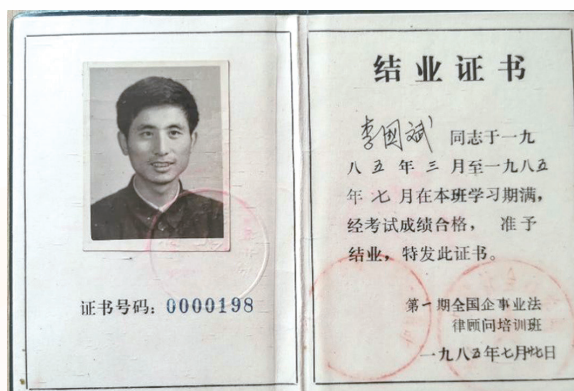 证书号码：0000198
结业证书
李国斌 同志于一九
八五年三月至一九八五
年七月在本班学习期满，
经考试成绩合格， 准予
结业，特发此证书。
第一期全国企事业法
律顾问培训班
一九八五年七月 日